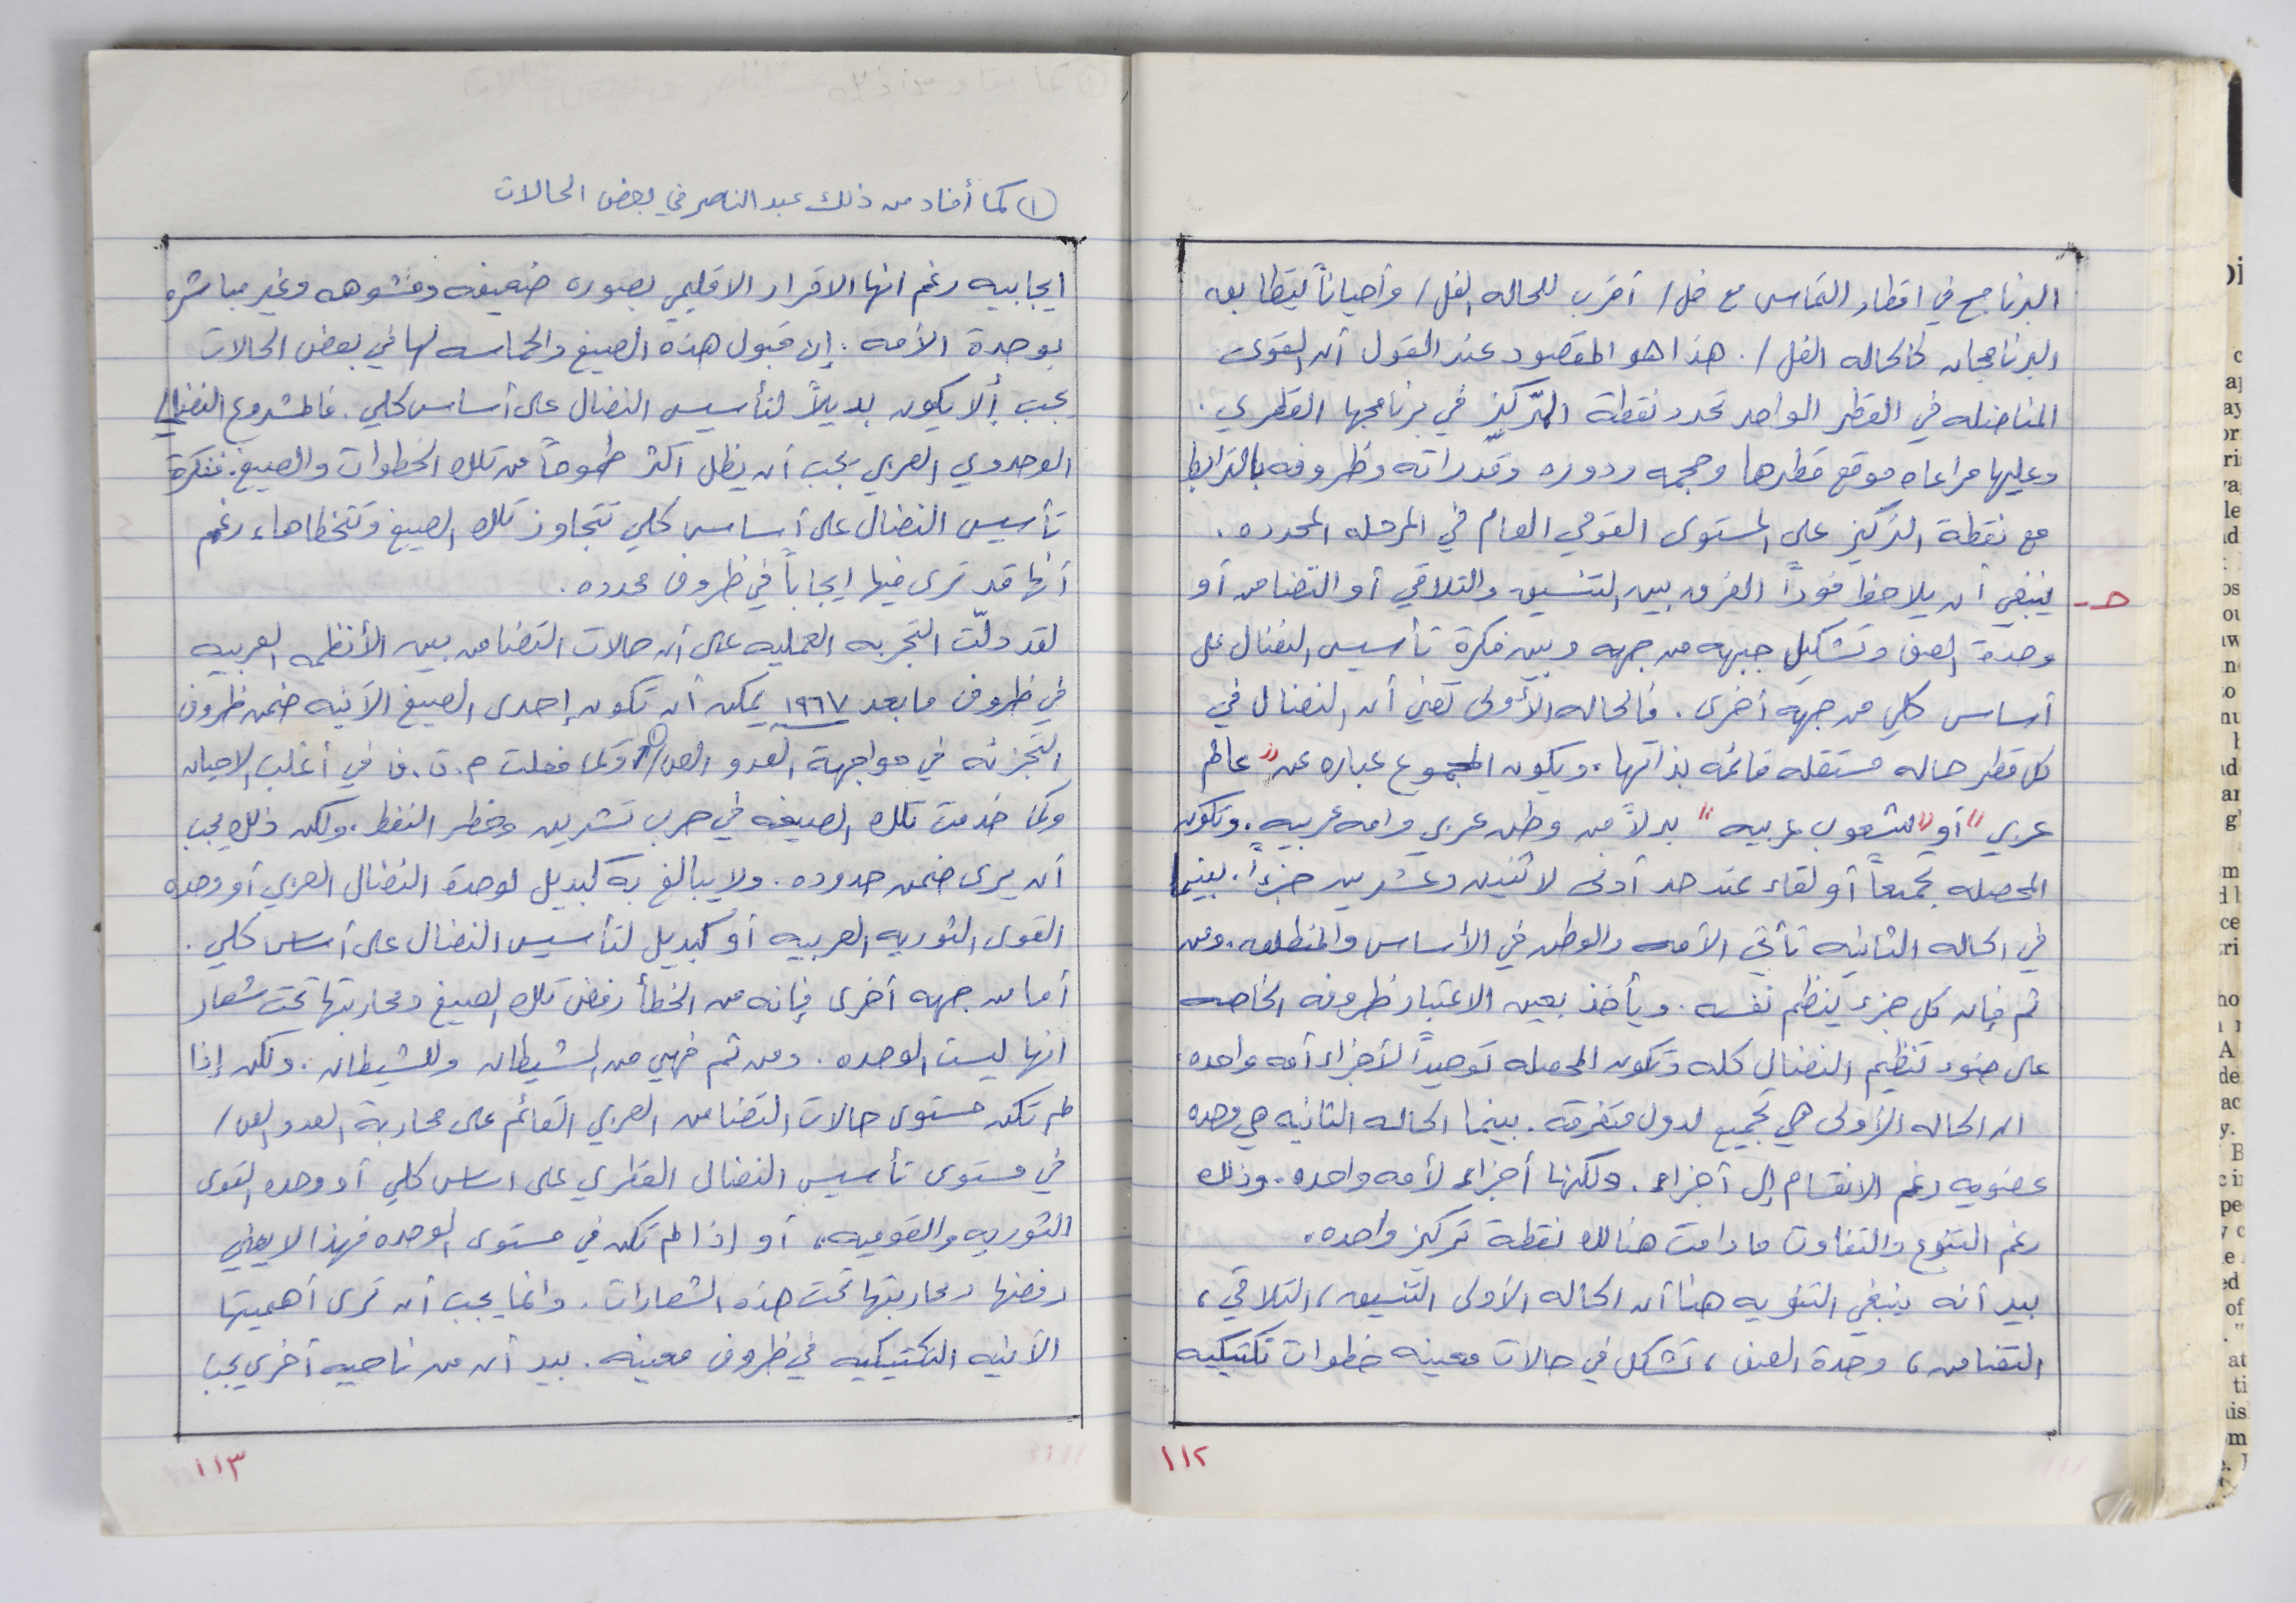 البرنامج في اقطار التماس مع فل/ أقرب للحاله الفل/ وأحياناً يتطابق
البرنامجان كالحاله الفل/. هذا هو المقصود عند القول أن القوى
المناضله في القطر الواحد تحدد نقطة التركيز في برنامجها القطري.
وعليها مراعاه موقع قطرها وحجمه ودوره وقدراته وظروفه بالترابط
مع نقطة التركيز على المستوى القومي العام في المرحله المحدده.
حـ- ينبغي أن يلاحظ فوراً الفرق بين التنسيق والتلاقي أو التضامن أو
وحدة الصف وتشكيل جبهه من جهه وبين فكرة تأسيس النضال على
أساس كلي من جهه أخرى. فالحاله الأولى تعني أن النضال في
كل قطر حاله مستقله قائمه بذاتها. ويكون المجموع عباره عن "عالم
عربي" أو "شعوب عربيه" بدلاً من وطن عربي وامه عربيه. وتكون
المحصله تجميعاً أو لقاء عند حد أدنى لاثنين وعشرين جزءاً. بينما
في الحاله الثانيه تأتي الأمه والوطن في الأساس والمنطلق. ومن
ثم فإن كل جزء ينظم نفسه. ويأخذ بعين الاعتبار ظروفه الخاصه
على ضوء تنظيم النضال كله وتكون المحصله توحيداً لأجزاء أمه واحده.
ان الحاله الأولى هي تجميع لدول متفرقه. بينما الحاله الثانيه هي وحده
عضويه رغم الانقسام إلى أجزاء. ولكنها أجزاء لأمه واحده. وذلك
رغم التنوع والتفاوت ما دامت هنالك نقطة تركيز واحده.
بيد أنه ينبغي التنويه هنا أن الحاله الأولى التنسيق، التلاقي،
التضامن، وحدة الصف، تشكل في حالات معينه خطوات تكتيكيه
١١٢
(١) كما أفاد من ذلك عبد الناصر في بعض الحالات
ايجابيه رغم انها الاقرار الاقليمي بصوره ضعيفه ومشوهه وغير مباشره
بوحدة الأمه. إن قبول هذه الصيغ والحماسه لها في بعض الحالات
يجب ألا يكون بديلاً لتأسيس النضال على أساس كلي. فالمشروع النضالي
الوحدوي العربي يجب أن يظل أكثر طموحاً من تلك الخطوات والصيغ. ففكرة
تأسيس النضال على أساس كلي تتجاوز تلك الصيغ وتتخطاها، رغم
أنها قد ترى فيها ايجاباً في ظروف محدده.
لقد دلّت التجربه العمليه على أن حالات التضامن بين الأنظمه العربيه
في ظروف ما بعد ١٩٦٧ يمكن أن تكون إحدى الصيغ الآنيه ضمن ظروف
التجزئه في مواجهة العدو الص/(١) وكما فعلت م.ت.ف في أغلب الاحيان
وكما خدمت تلك الصيغه في حرب تشرين وحظر النفط. ولكن ذلك يجب
أن يرى ضمن حدوده. ولا يبالغ به كبديل لوحدة النضال العربي أو وحده
القوى الثوريه العربيه أو كبديل لتأسيس النضال على أساس كلي.
أما من جهه أخرى فإنه من الخطأ رفض تلك الصيغ ومحاربتها تحت شعار
انها ليست الوحده. ومن ثم فهي من الشيطان وللشيطان. ولكن إذا
لم تكن مستوى حالات التضامن العربي القائم على محاربة العدو الص/
في مستوى تأسيس النضال القطري على اساس كلي أو وحده القوى
الثوريه والقوميه، أو إذا لم تكن في مستوى الوحده فهذا لا يعني
رفضها ومحاربتها تحت هذه الشعارات. وانما يجب أن نرى أهميتها
الآنيه التكتيكيه في ظروف معينه. بيد أن من ناحيه أخرى يجب
١١٣